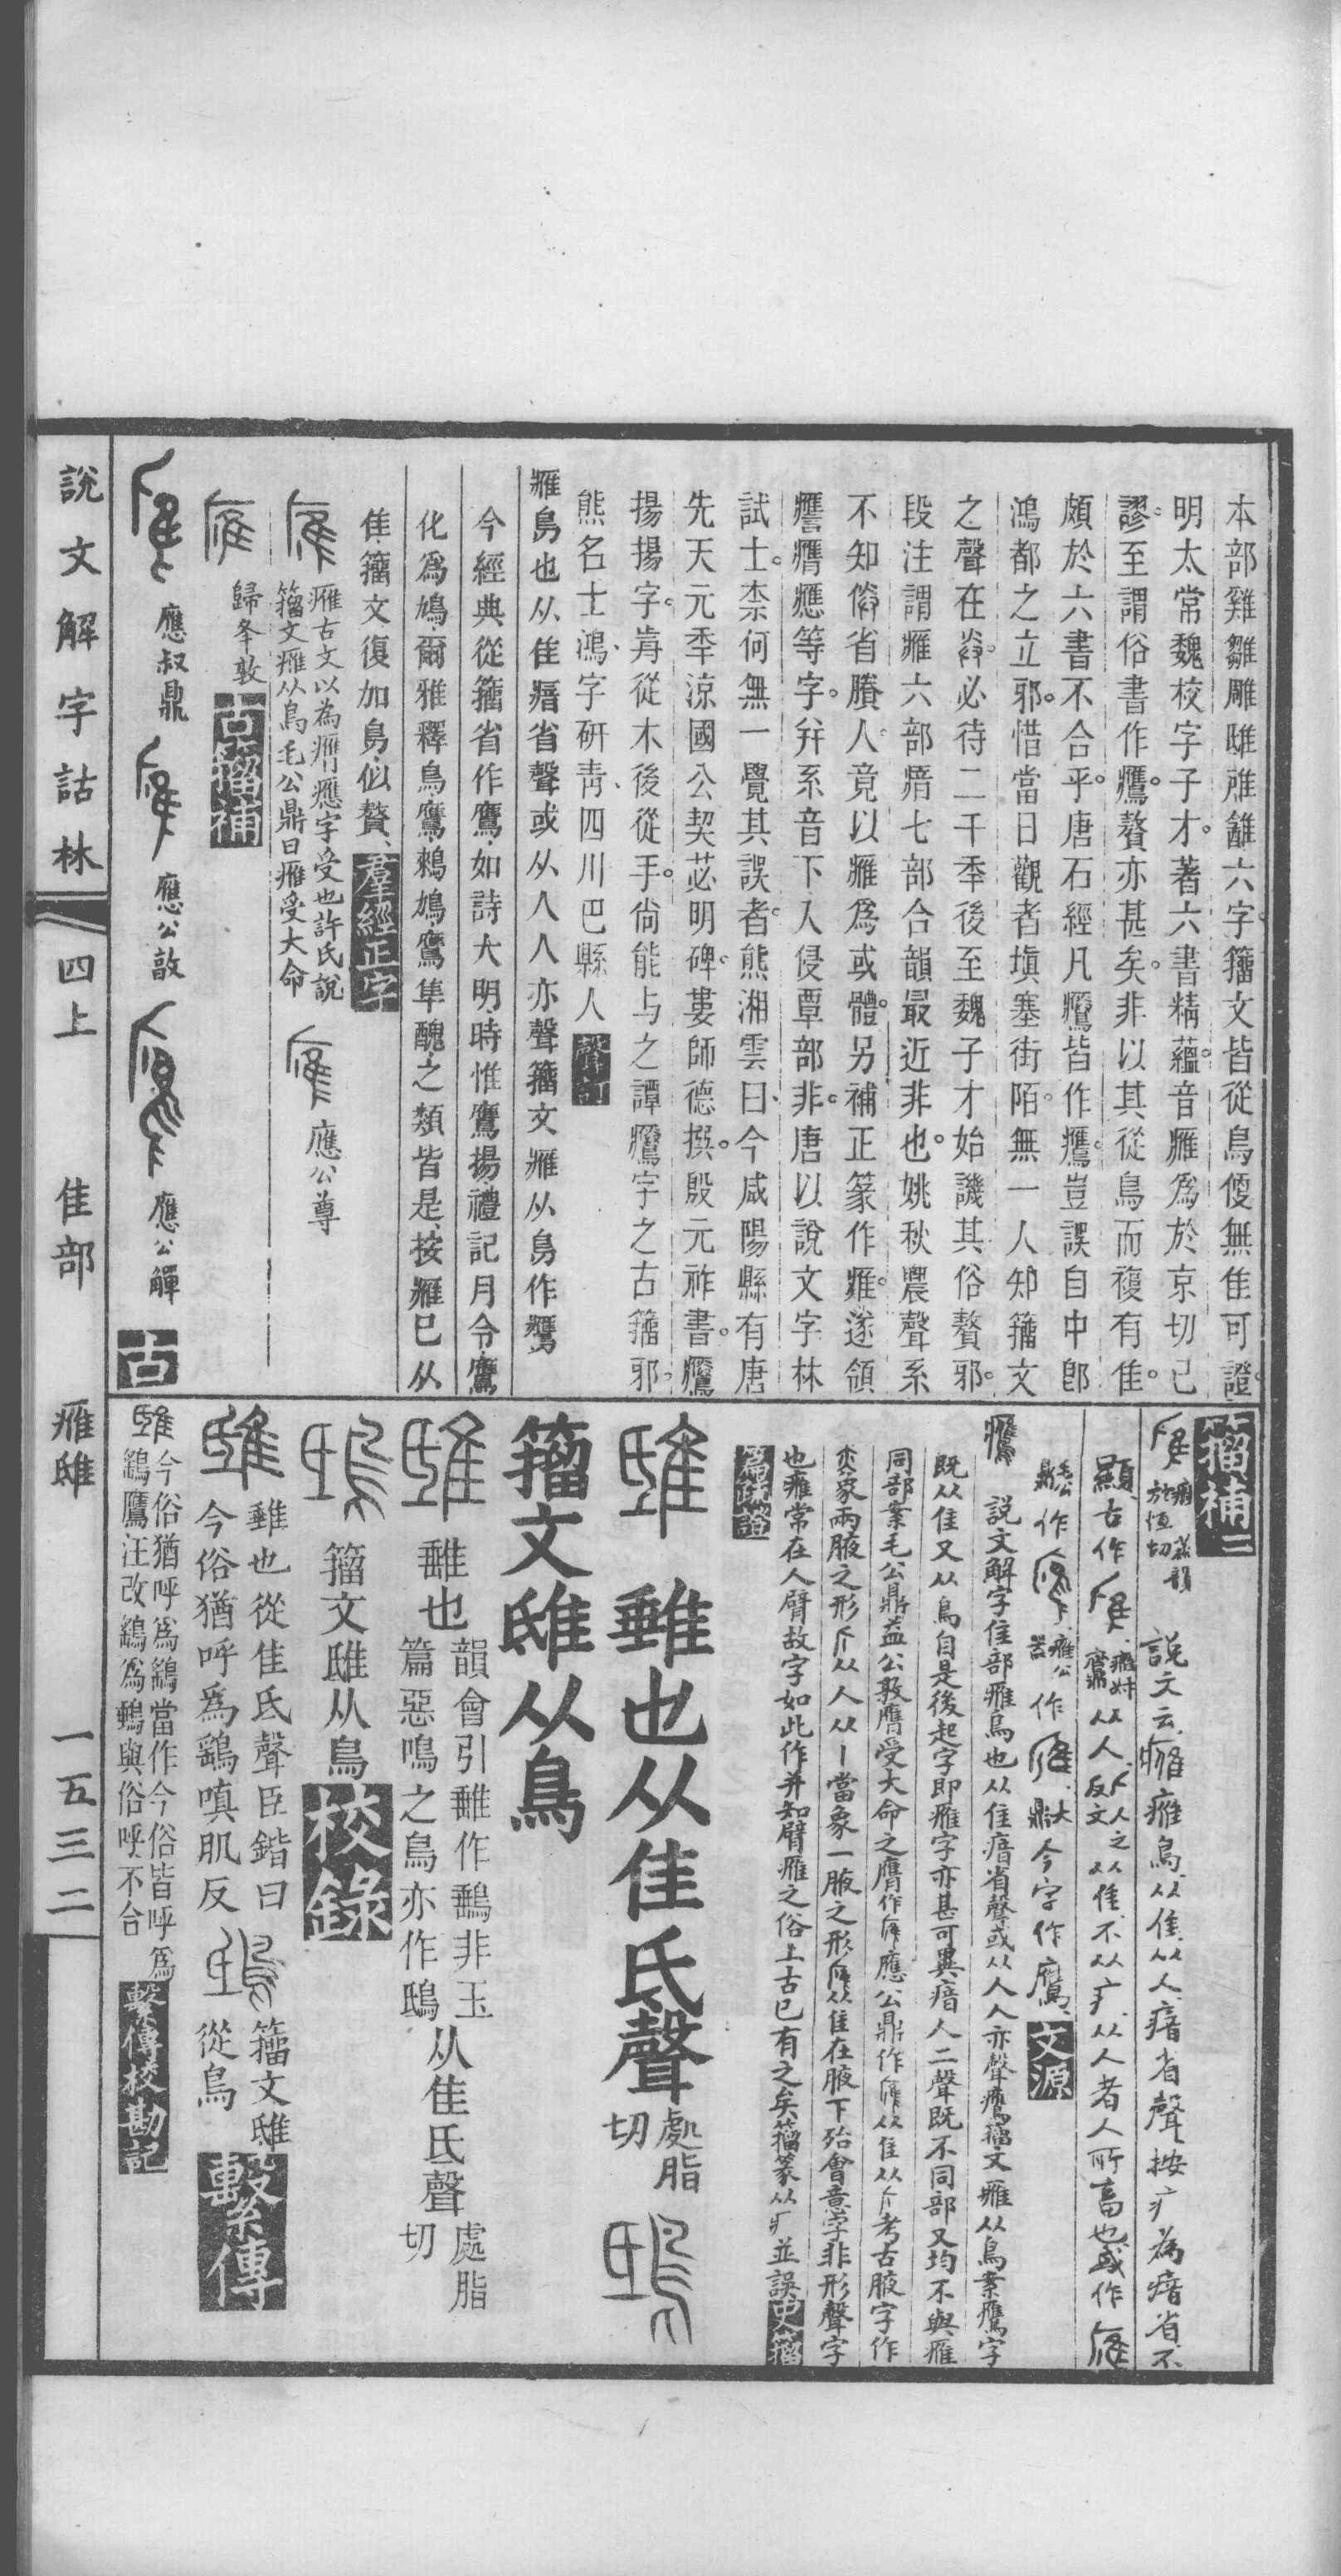 本部雞雛雕雎雁雝六字籒文皆從鳥復無隹可證
明太常魏校字子才著六書精蘊音雁爲於京切已
謬至謂俗書作鷹贅亦甚矣非以其從鳥而複有隹
頗於六書不合乎唐石經凡鷹皆作鷹豈誤自中郎
鴻都之立邪惜當日觀者填塞街陌無一人知籒文
之聲在必待二千秊後至魏子才始譏其俗贅邪
段注謂雁六部瘖七部合韻最近非也姚秋農聲系
不知省賸人竟以雁爲或體另補正篆作雁遂領
譍膺應等字幷系音下入侵覃部非唐以說文字林
試士柰何無一覺其誤者熊湘雲曰今咸陽縣有唐
先天元秊涼國公契苾明碑婁師德撰殷元祚書鷹
揚揚字歬從木後從手尙能与之譚鷹字之古籒邪
熊名士鴻字研靑四川巴縣人 聲訂
雁鳥也从隹瘖省聲或从人人亦聲籒文雁从鳥作鷹
今經典從籒省作鷹如詩大明時惟鷹揚禮記月令鷹
化爲鳩爾雅釋鳥鷹鶆鳩鷹隼醜之類皆是按雁已从
隹籒文復加鳥似贅 羣經正字
雁古文以為膺應字受也許氏說
籀文雁从鳥毛公鼎曰雁受大命
應公尊
歸夆敦 古籀補
應叔鼎 應公敦 應公觶 古
籀補二
說文云雁鳥从隹从人瘖省聲按疒為瘖省不
顯古作 从人反文 之从隹不从疒从人者人所畜也或作
作 作 今字作鷹 文源
說文解字隹部雁鳥也从隹瘖省聲或从人人亦聲鷹籀文雁从鳥案鷹字
既从隹又从鳥自是後起字即雁字亦甚可異瘖人二聲既不同部又均不與雁
同部案毛公鼎益公敦膺受大命之膺作應公鼎作从隹从考古腋字作
亦象兩腋之形从人从丨當象一腋之形从隹在腋下殆會意字非形聲字
也雁常在人臂故字如此作并知臂雁之俗上古已有之矣籀篆从疒並誤 史籀
篇疏證
雖也从隹氏聲 處脂切
籀文雎从鳥
雖也 韻會引雖作鴟非玉篇惡鳴之鳥亦作鴟 从隹氏聲 處脂切
籀文雎从鳥 校錄
雖也從隹氏聲臣鍇曰
今俗猶呼爲鷂嗔肌反 籀文雎從鳥 繫傳
今俗猶呼爲鷂當作今俗皆呼爲
鷂鷹汪改鷂爲鵄與俗呼不合 繫傳校勘記
說文解字詁林 四上 隹部 雁雎 一五三二